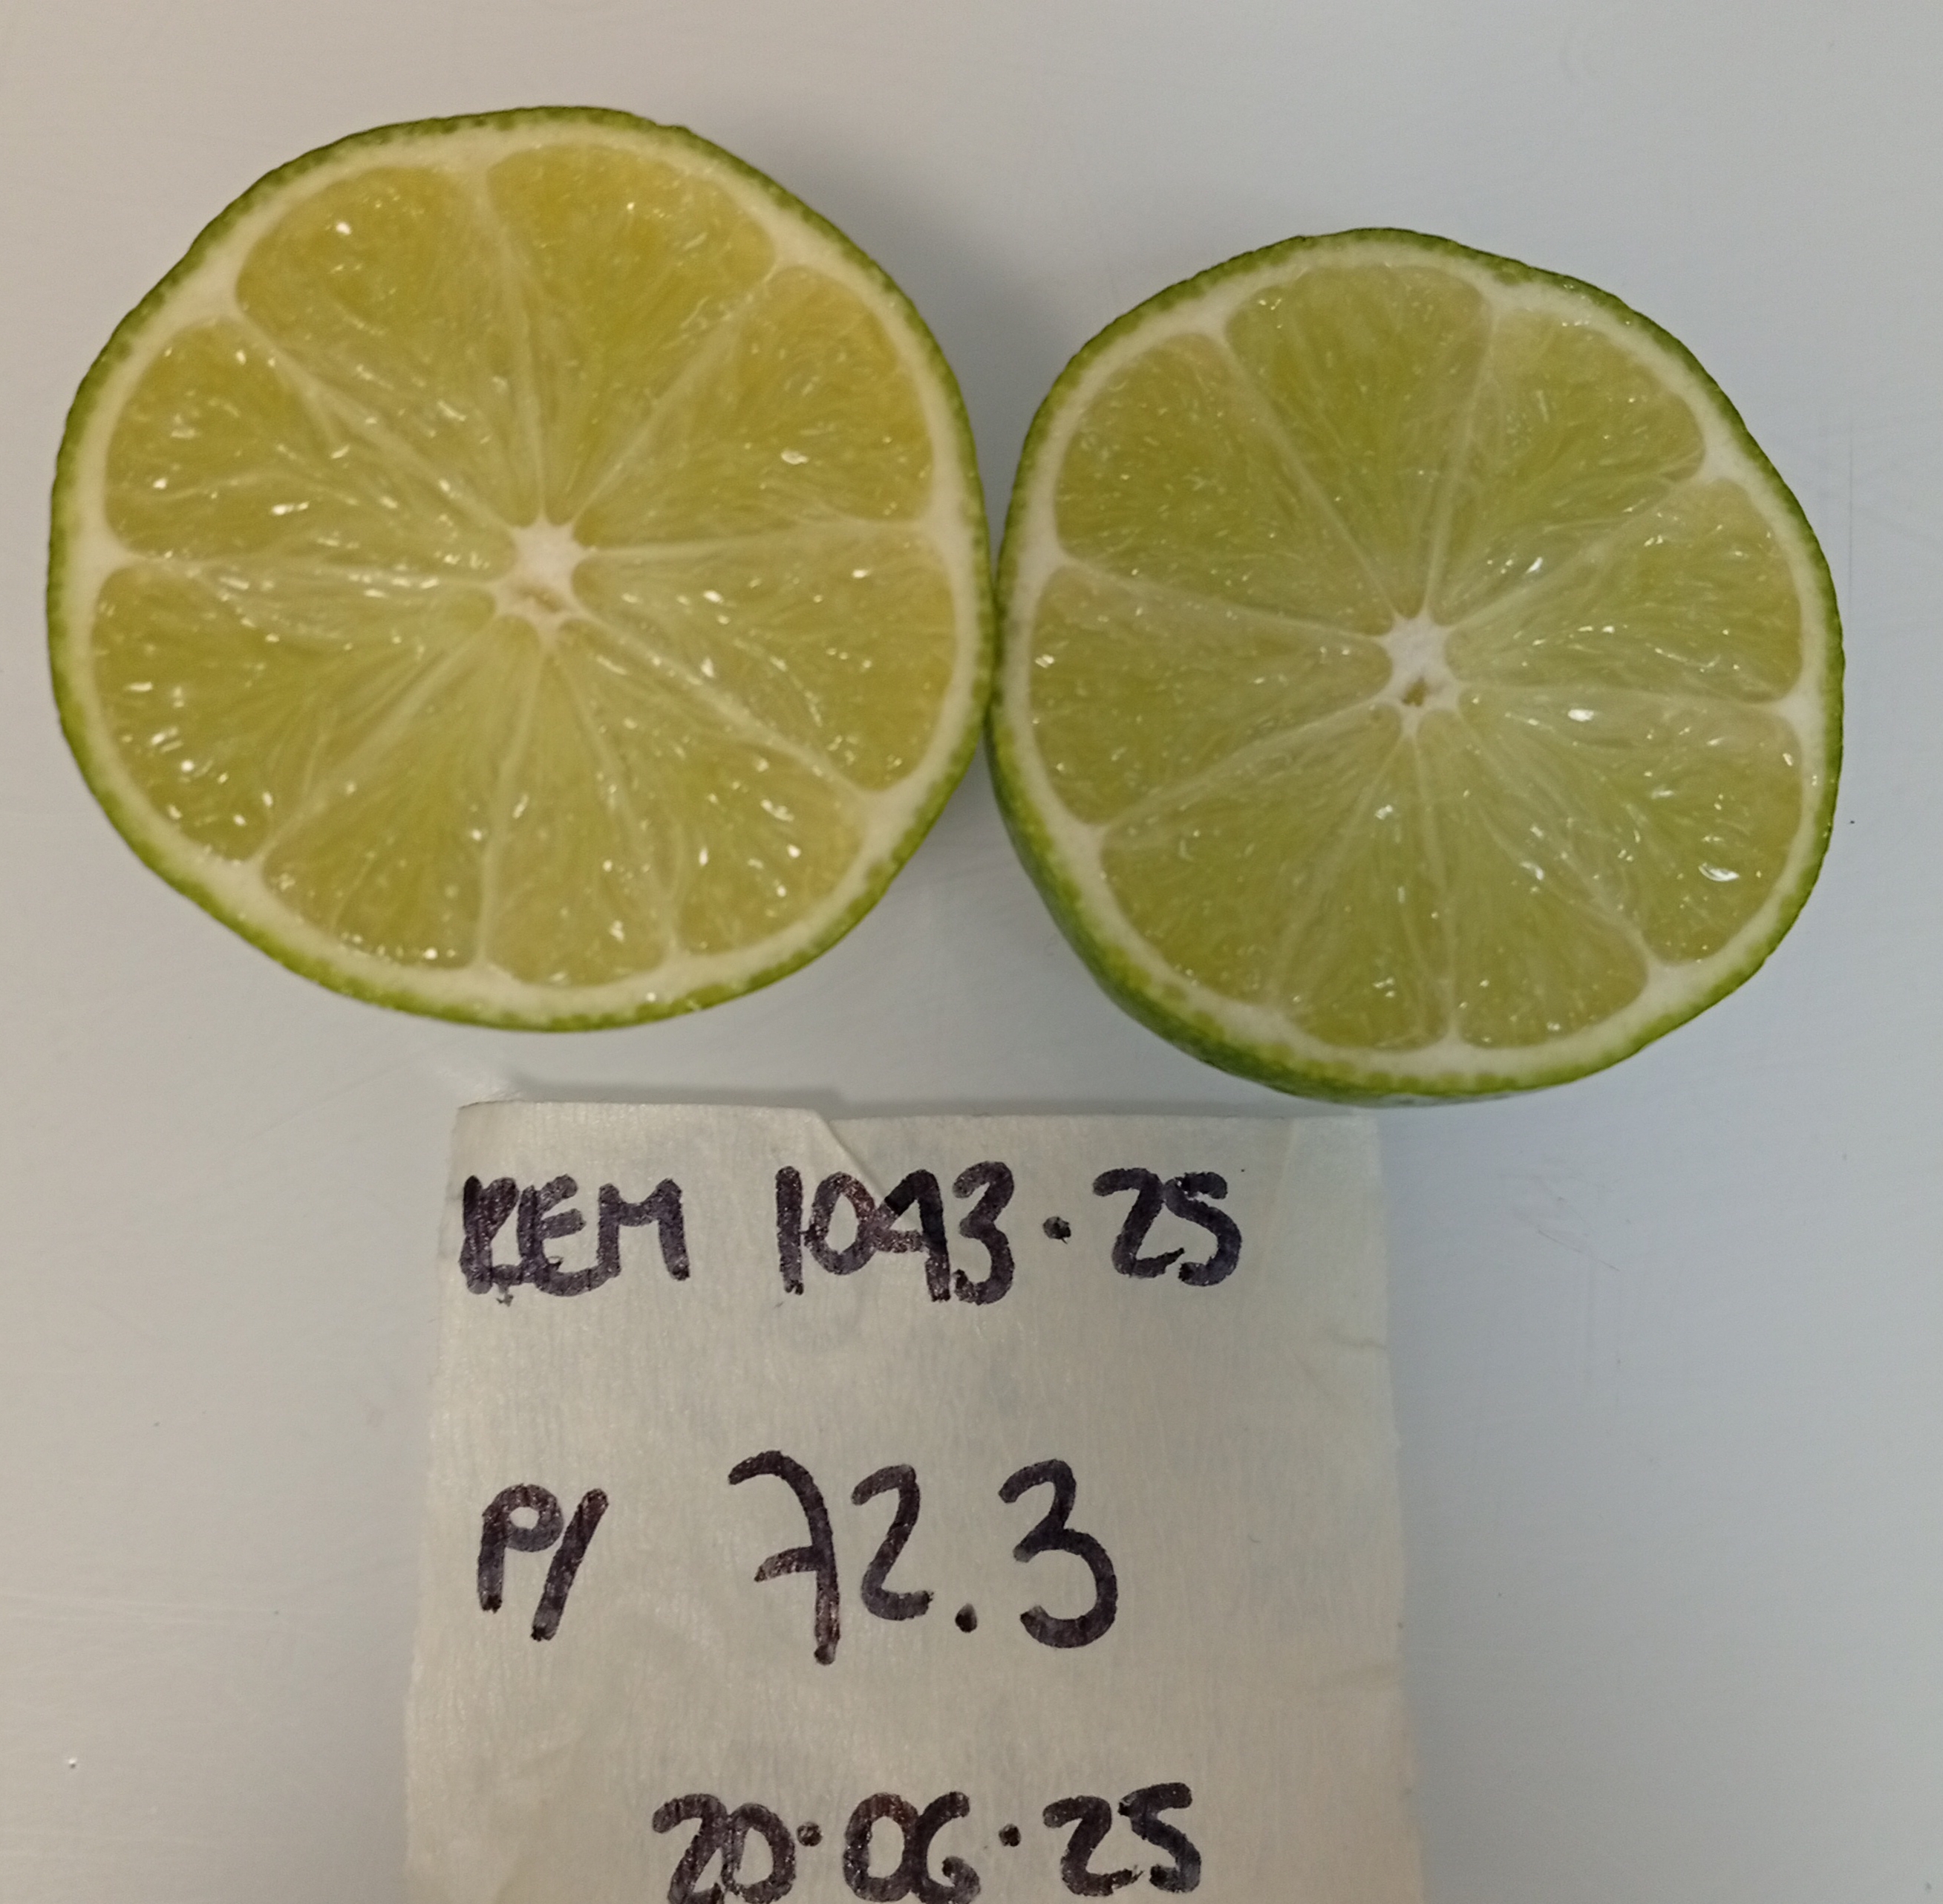 REM 1043·25
P/ 72.3
20·06·25